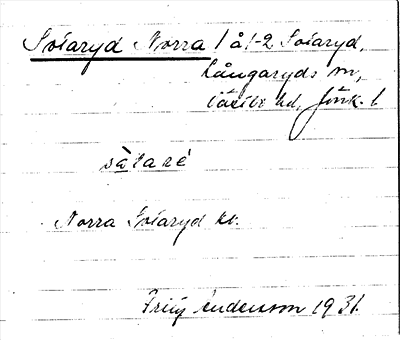 Sotaryd Norra 1 å 1-2 Sotaryd,
Långaryds sn,
Västbo hd, Jönk. l
sàtaré
Norra Sotaryd kt.
Frity Andersson 1931.